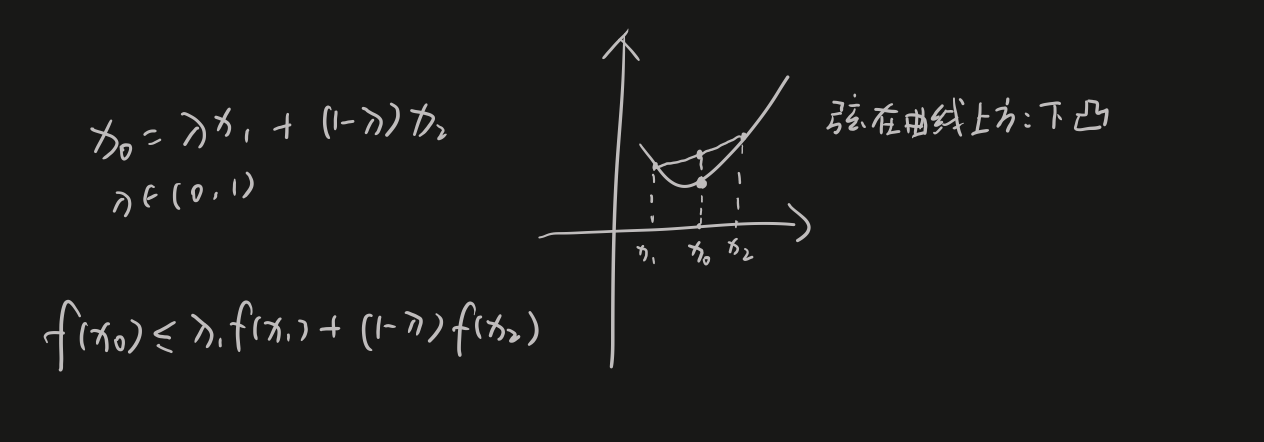 x₀ = λx₁ + (1-λ)x₂
λ∈(0,1)
f(x₀) ≤ λ₁f(x₁) + (1-λ)f(x₂)
x₁ x₀ x₂
弦在曲线上方:下凸